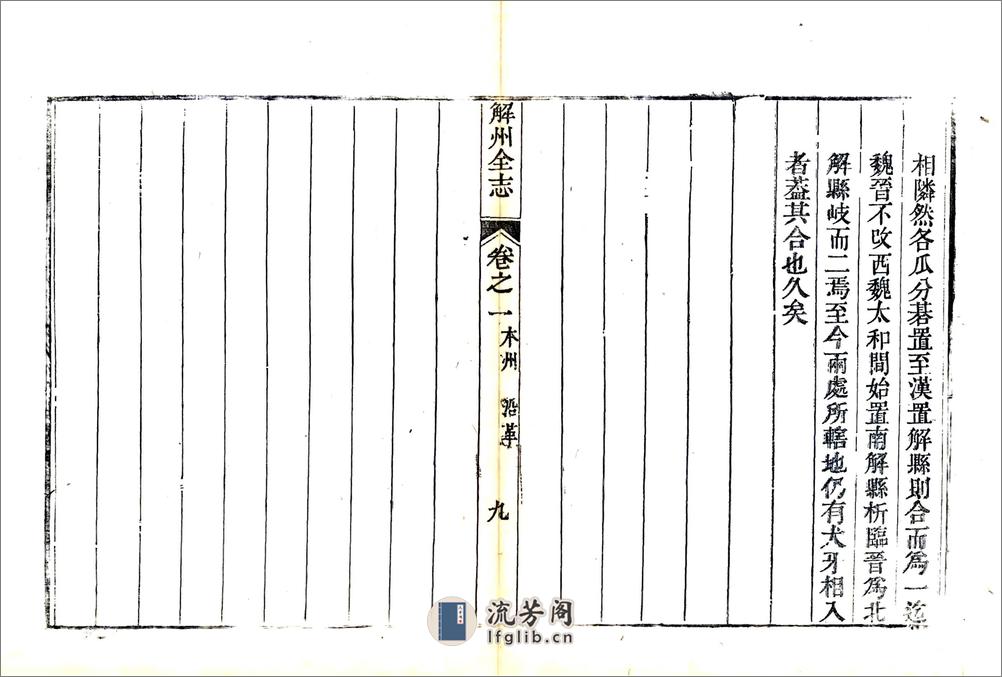 相隣然各瓜分碁置至漢置解縣則合而爲一迄
魏晉不改西魏太和間始置南解縣析臨晉爲北
解縣岐而二焉至今兩處所轄地仍有犬牙相入
者葢其合也久矣
解州全志
卷之一
本州 沿革
九
流芳阁
lfglib.cn